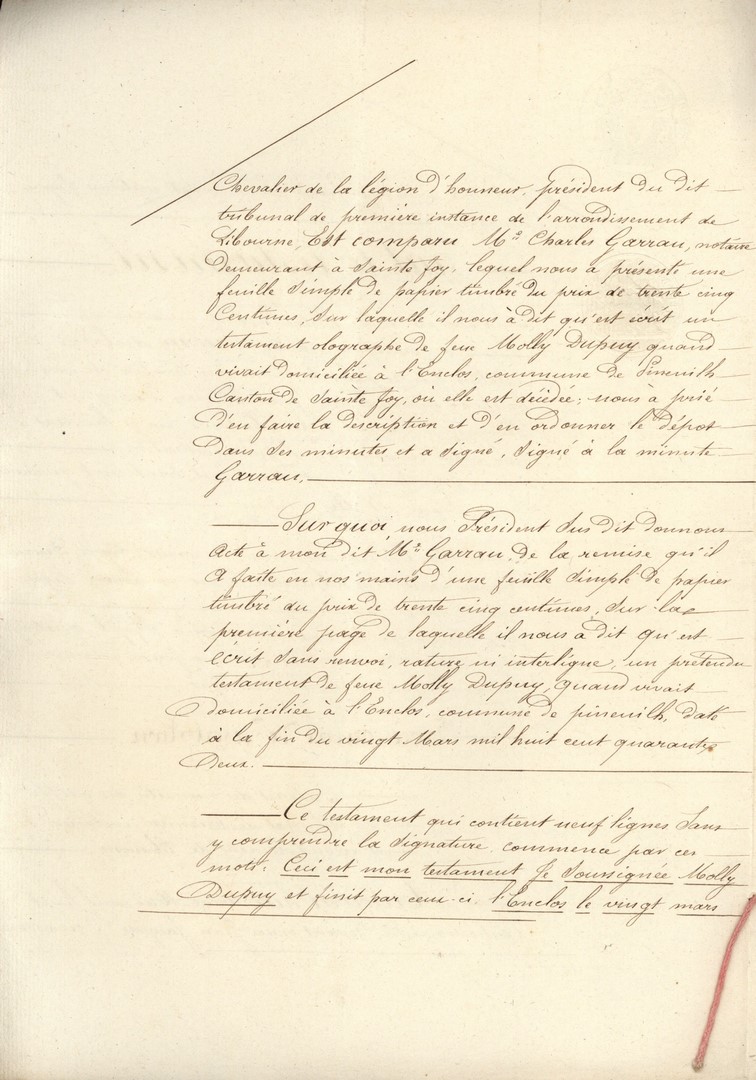 Chevalier de la légion d'honneur, président du dit
tribunal de première instance de l'arrondissement de
Libourne, Est comparu Me Charles Garrau, notaire
demeurant à Sainte foy, lequel nous a présenté une
feuille simple de papier timbré du prix de trente cinq
Centimes, sur laquelle il nous à dit qu'est écrit un
testament olographe de feue Molly Dupuy quand
vivait domiciliée à l'Enclos, commune de Pineuilh
Canton de Sainte foy, où elle est décédée; nous à prié
d'en faire la description et d'en ordonner le dépot
dans ses minutes et a signé, signé à la minute
Garrau,
Sur quoi, nous Président sus dit donnons
Acte à mon dit Me Garrau, de la remise qu'il
A faite en nos mains d'une feuille simple de papier
timbré du prix de trente cinq centimes, sur la
première page de laquelle il nous à dit qu'est
écrit sans renvoi, rature ni interligne, un prétendu
testament de feue Molly Dupuy, quand vivait
domiciliée à l'Enclos, commune de pineuilh, daté
à la fin du vingt Mars mil huit cent quarante
deux.
Ce testament qui contient neuf lignes sans
y comprendre la signature commence par ces
mots: Ceci est mon testament Je soussignée Molly
Dupuy et finit par ceux-ci. l'Enclos le vingt mars